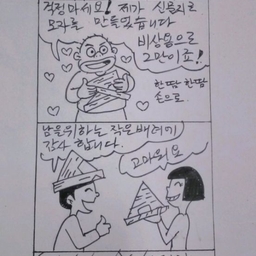 걱정마세요! 제가 신문지로
모자를 만들었습니다
비상용으로
그만이죠!
한땀한땀
손으로
남을위하는 작은배려에
감사 합니다.
고마워요